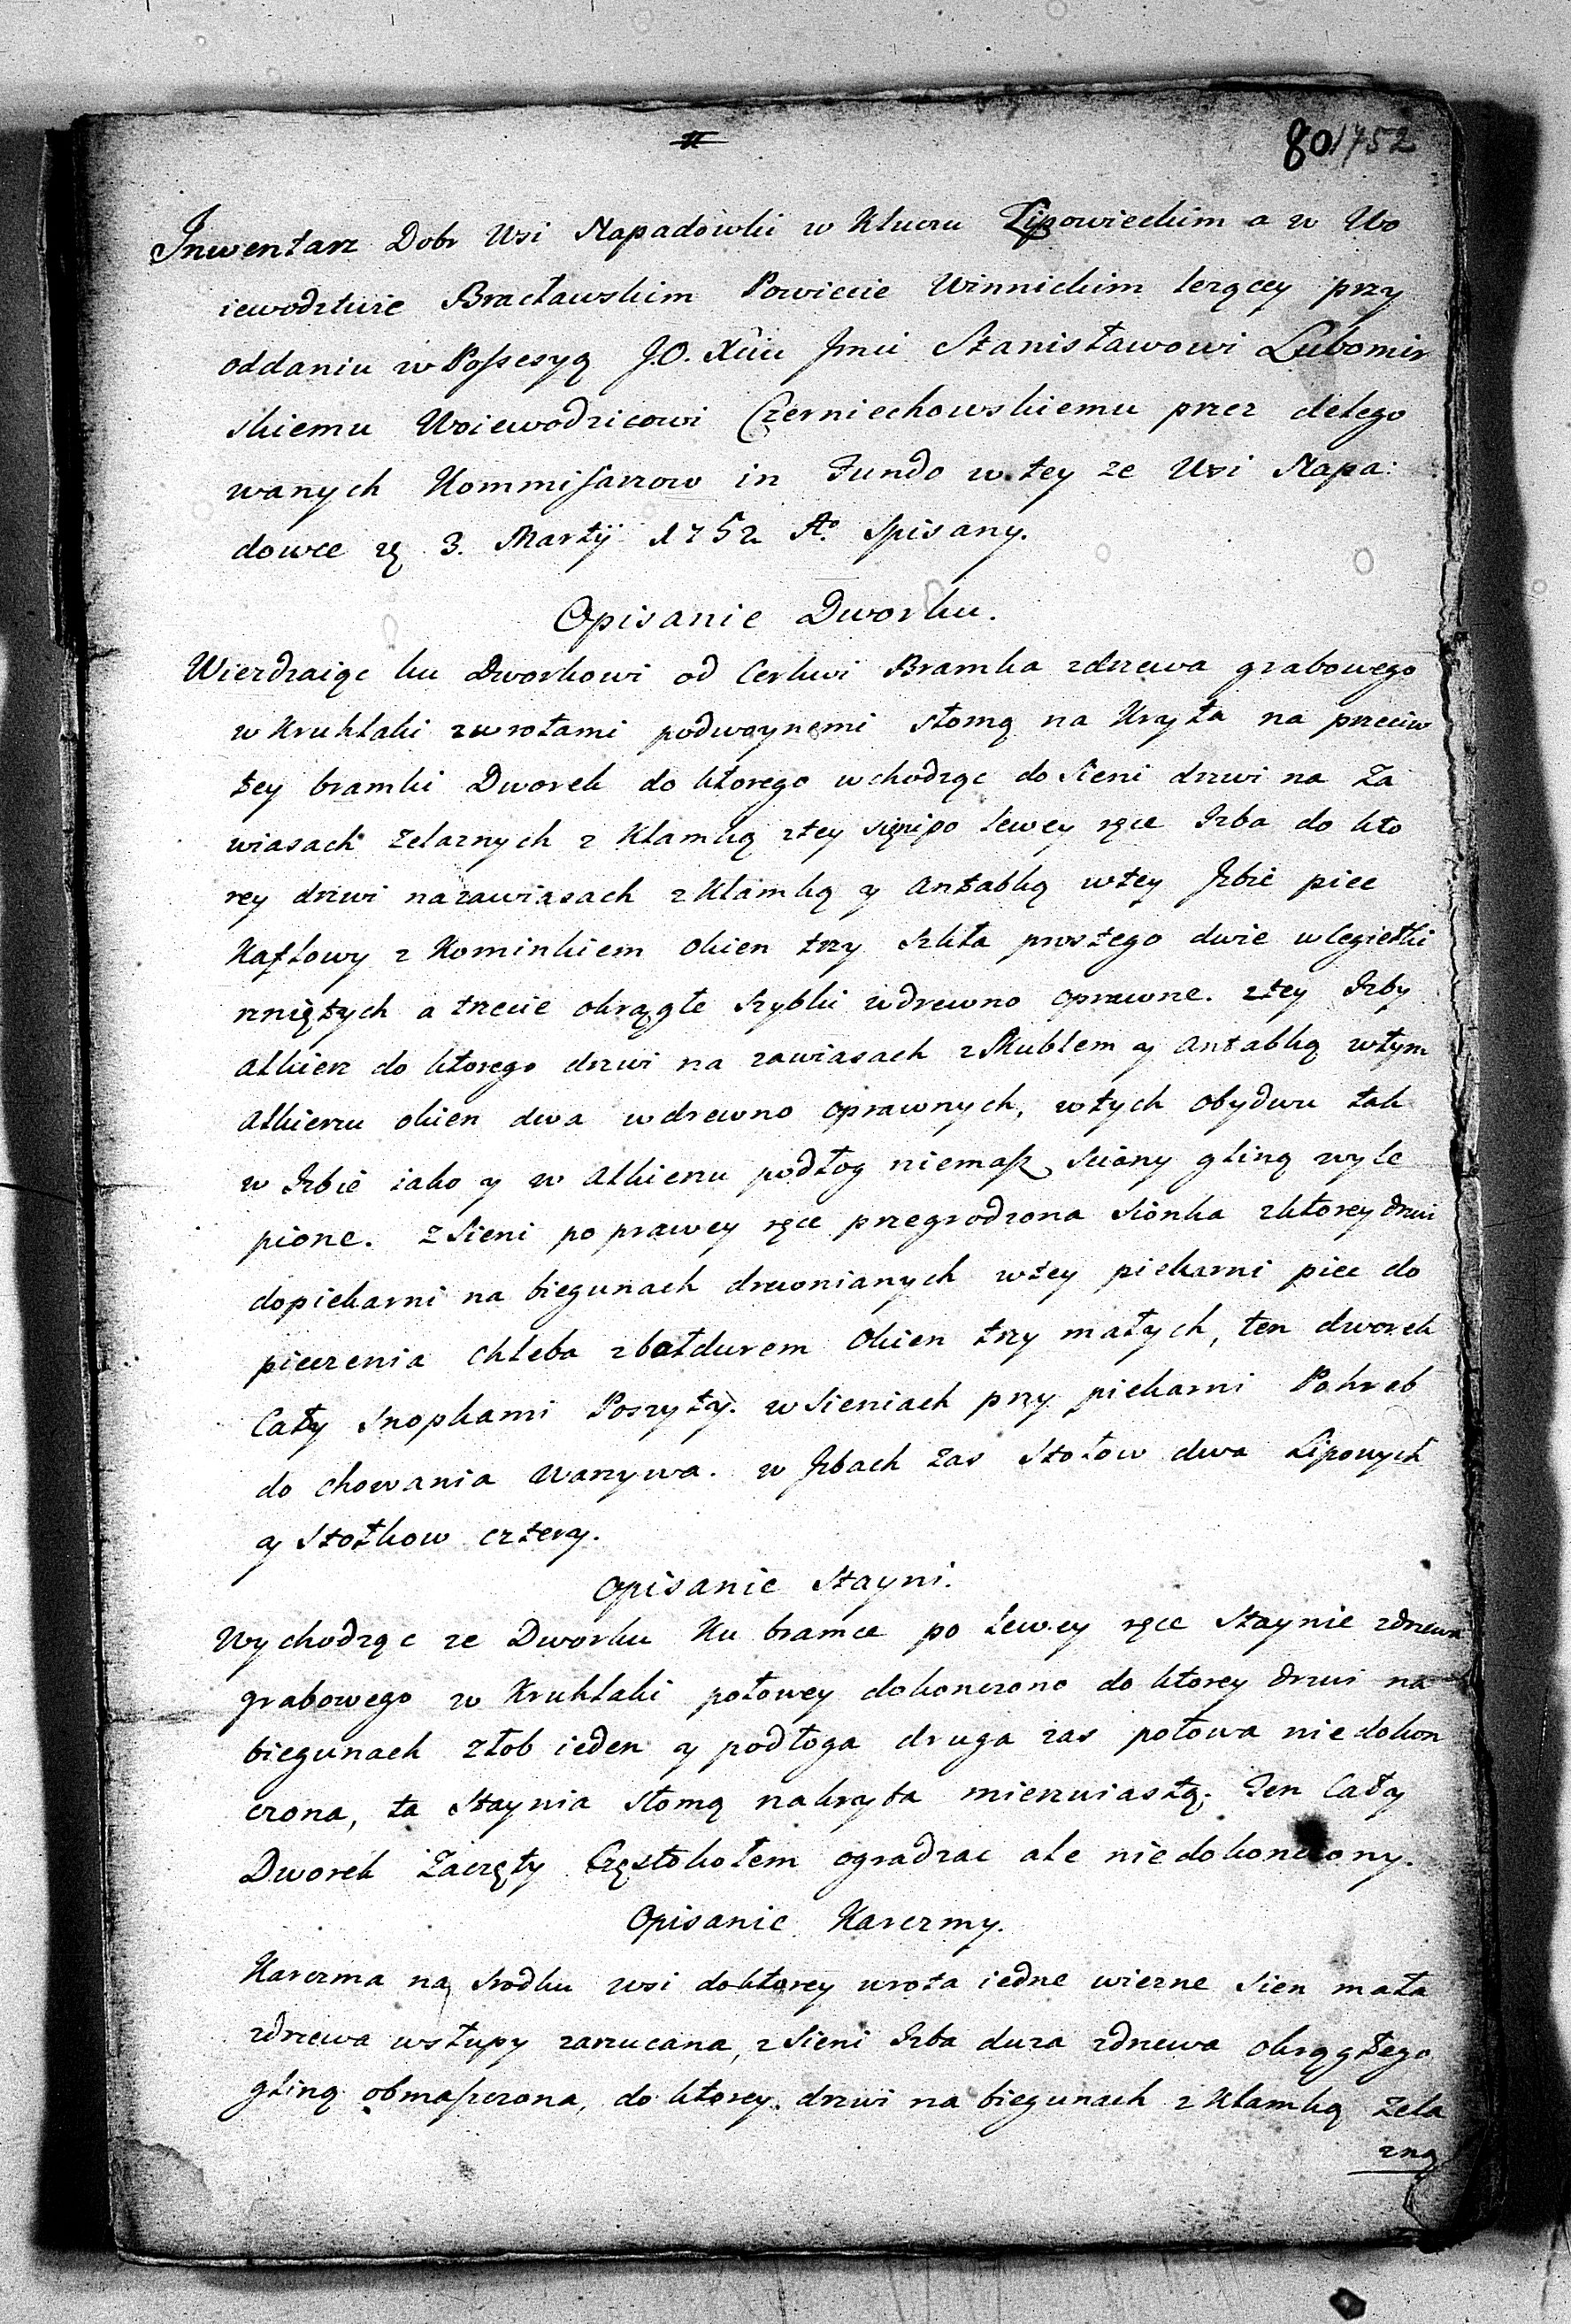 80 1752
Inwentarz Dobr Wsi Napadowki w Kluczu Lipowieckim a w Wo
iewodztwie Bracławskim Powiecie Winnickim leżącey przy
oddaniu w Possesyą J.O. Xciu Jmci Stanisławowi Lubomir
skiemu Woiewodzicowi Czerniechowskiemu przez delego
wanych Kommissarzow in Fundo w tey ze Wsi Napa:
dowce 3. Martÿ 1752 Aº Spisany.
Opisanie Dworku.
Wiezdzaiąc ku Dworkowi od Cerkwi Bramka z drzewa grabowego
w Kruhlaki z wrotami podwoynemi słomą na Kryta na przeciw
tey bramki Dworek do ktorego wchodząc do Sieni drzwi na Za
wiasach Zelaznych z Klamką z tey sięni po lewey ręce Izba do kto
rey drzwi na zawiasach z Klamką y antabką w tey Izbie piec
Kaflowy z Kominkiem okien trzy szkła prostego dwie w Cegiełki
rzniętych a trzecie okrągłe szybki w drewno oprawne. z tey Izby
alkierz do ktorego drzwi na zawiasach z Skublem y antabką w tym
alkierzu okien dwa w drewno oprawnych, w tych obydwu tak
w Izbie iako y w alkierzu podłog niemasz, sciany gliną wyle
pione. z Sieni po prawey ręce przegrodzona Sionka z ktorey drzwi
do piekarni na biegunach drewnianych w tey piekarni piec do
pieczenia chleba z bałdurem okien trzy małych, ten dworek
Cały Snopkami Poszyty. w Sieniach przy piekarni Pohreb
do chowania warzywa. w Izbach zas Stołow dwa Lipowych
y Stołkow cztery.
Opisanie Stayni.
Wychodząc ze Dworku Ku bramce po lewey ręce Staynie z drzewa
grabowego w Kruhlaki połowey dokonczono do ktorey drzwi na
biegunach żłob ieden y podłoga druga zas połowa niedokon
czona, ta Staynia Słomą nakryta mierzwiastą. Ten Cały
Dworek Zaczęty Częstokołem ogradzac ale niedokonczony.
Opisanie Karczmy.
Karczma na Srodku wsi do ktorey wrota iedne wiezne Sien mała
z drzewa w słupy zarzucana, z Sieni Izba duza z drzewa okrągłego
gliną obmaszczona, do ktorey drzwi na biegunach z Klamką Zela
zną